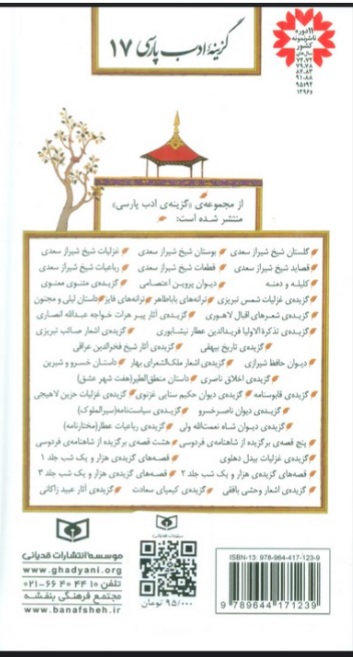 گزینهٔ ادب پارسی ۱۷
۱۱ دوره
ناشر نمونه
کشور
سال‌های
۷۲،۷۴
۷۹،۷۸
۸۴-۸۳
۹۱-۸۸
۹۵و۹۴
۱۳۹۶و
از مجموعه‌ی «گزینه‌ی ادب پارسی»
منتشر شده است:
گلستان شیخ شیراز سعدی بوستان شیخ شیراز سعدی غزلیات شیخ شیراز سعدی
قصاید شیخ شیراز سعدی قطعات شیخ شیراز سعدی رباعیات شیخ شیراز سعدی
کلیله و دمنه دیوان پروین اعتصامی گزیده‌ی مثنوی معنوی
گزیده‌ی غزلیات شمس تبریزی ترانه‌های باباطاهر ترانه‌های فایز داستان لیلی و مجنون
گزیده‌ی شعرهای اقبال لاهوری گزیده‌ی آثار پیر هرات خواجه عبدالله انصاری
گزیده‌ی تذکرة الاولیا فریدالدین عطار نیشابوری گزیده‌ی اشعار صائب تبریزی
گزیده‌ی تاریخ بیهقی گزیده‌ی آثار شیخ فخرالدین عراقی
دیوان حافظ شیرازی گزیده‌ی اشعار ملک‌الشعرای بهار داستان خسرو و شیرین
گزیده‌ی اخلاق ناصری داستان منطق‌الطیر(هفت شهر عشق)
گزیده‌ی قابوسنامه گزیده‌ی دیوان حکیم سنایی غزنوی گزیده‌ی غزلیات حزین لاهیجی
گزیده‌ی دیوان ناصرخسرو گزیده‌ی سیاست‌نامه(سیرالملوک)
گزیده‌ی دیوان شاه نعمت‌الله ولی گزیده‌ی رباعیات عطار(مختارنامه)
پنج قصه‌ی برگزیده از شاهنامه‌ی فردوسی هشت قصه‌ی برگزیده از شاهنامه‌ی فردوسی
گزیده‌ی غزلیات بیدل دهلوی قصه‌های گزیده‌ی هزار و یک شب جلد ۱
قصه‌های گزیده‌ی هزار و یک شب جلد ۲ قصه‌های گزیده‌ی هزار و یک شب جلد ۳
گزیده‌ی اشعار وحشی بافقی گزیده‌ی کیمیای سعادت گزیده‌ی آثار عبید زاکانی
موسسه انتشارات قدیانی
www.ghadyani.org
تلفن ۱۰ ۴۴ ۴۰ ۶۶-۰۲۱
مجتمع فرهنگی بنفشه
www.banafsheh.ir
۹۵/۰۰۰ تومان
ISBN-13: 978-964-417-123-9
9 789644 171239